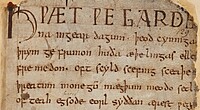 HǷÆT ǷE GARDE
na ingear dagum . þeod cyninga
þrym ge frunon huða æþelingas elle
fre medon . oft scyld scefing sceaþe
þreatum monegū mægþum meodo setl
of teah egsode eorl syððan ærest ƿear